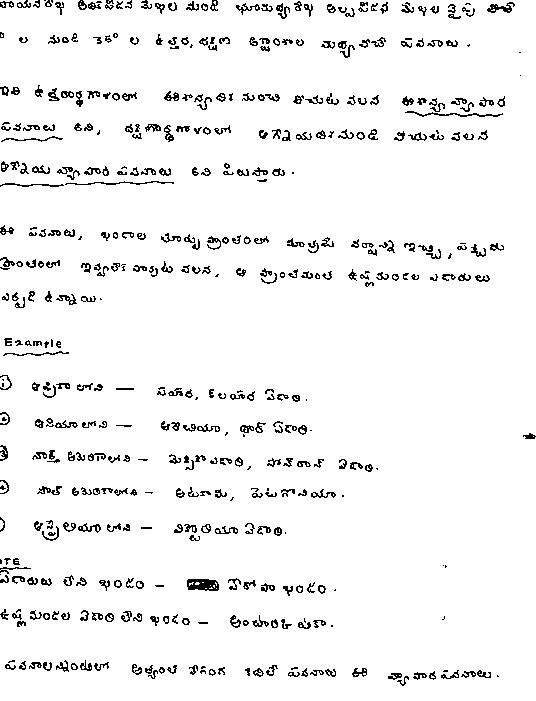 రేఖ అధిక పీడన మేఖల నుండి భూమధ్యరేఖ అల్ప పీడన మేఖల వైపు
ల నుండి 35° ల ఉత్తర, దక్షిణ అక్షాంశాల మధ్య వీచే పవనాలు.
ఇవి ఉత్తరార్థగోళంలో ఈశాన్య దిశ నుంచి వీచుట వలన ఈశాన్య వ్యాపార
పవనాలు అని, దక్షిణార్థగోళంలో ఆగ్నేయదిశనుండి వీచుట వలన
ఆగ్నేయ వ్యాపార పవనాలు అని పిలుస్తారు.
ఈ పవనాలు, ఖండాల తూర్పు ప్రాంతంలో మాత్రమే వర్షాన్ని ఇచ్చి, పశ్చిమ
ప్రాంతంలో ఇవ్వలేక పోవుట వలన, ఆ ప్రాంతమంత ఉష్ణమండల ఎడారులు
ఏర్పడి ఉన్నాయి.
Example
① ఆఫ్రికా లోని — సహార, కలహారి ఏడారి.
② ఆసియాలోని — అరేబియా, థార్ ఏడారి.
③ నార్త్ అమెరికాలోని — మెక్సికో ఎడారి, సోనోరాన్ ఏడారి.
④ సౌత్ అమెరికాలోని - అటకామ, పెటగోనియా.
ఆస్ట్రేలియా లోని — విక్టోరియా ఏడారి.
NOTE
ఏడారులు లేని ఖండం — ఐరోపా ఖండం.
ఉష్ణ మండల ఏడారి లేని ఖండం — అంటార్కిటికా.
పవనాలన్నింటిలో అత్యంత వేగంగ కదిలే పవనాలు ఈ వ్యాపార పవనాలు.